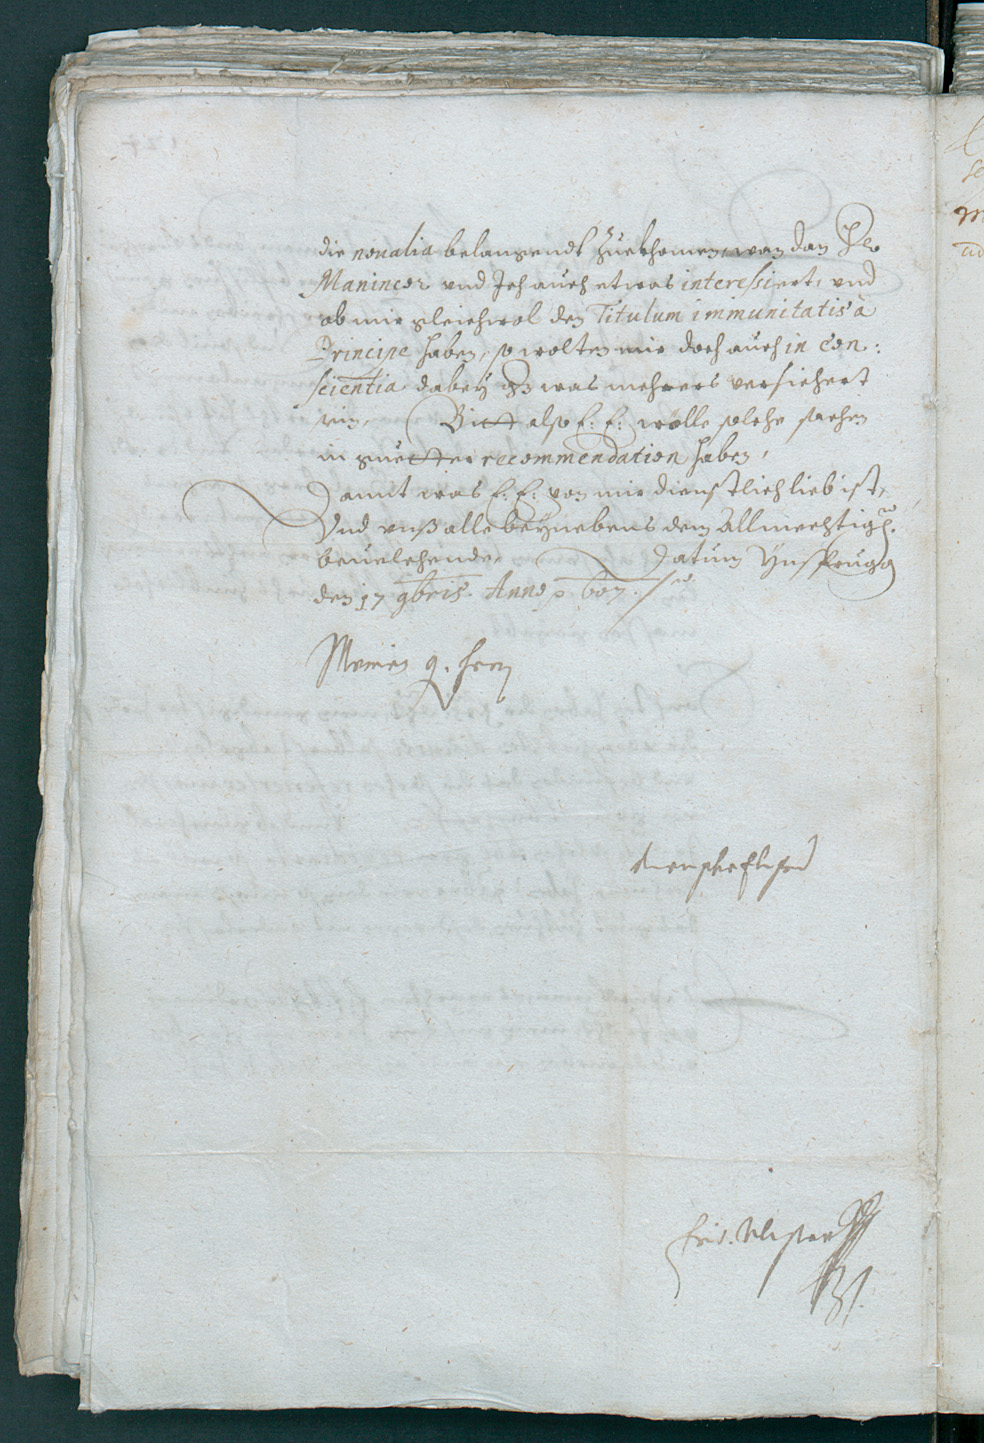 die noualia belangendt Zuekhomen, wan dan Hr
Manincor vnd Jch auch etwas interessiert, vnd
ob mir gleichwol den Titulum immunitatis à
Principe haben, so wolten mir doch auch in con:
scientia dabeÿ was mehrers versichert
sein, Bitt also E: E: wölle solche sachen
in guetter recommendation haben,
Damit was E: E: von mir dienstlich lieb ist,
Vnd vnß alle beÿnebens dem Allmechtigen
beuelehende, Datum Ynsprugg
den 17 9bris Anno 607.
Meines g. hern
dienstbeflißner